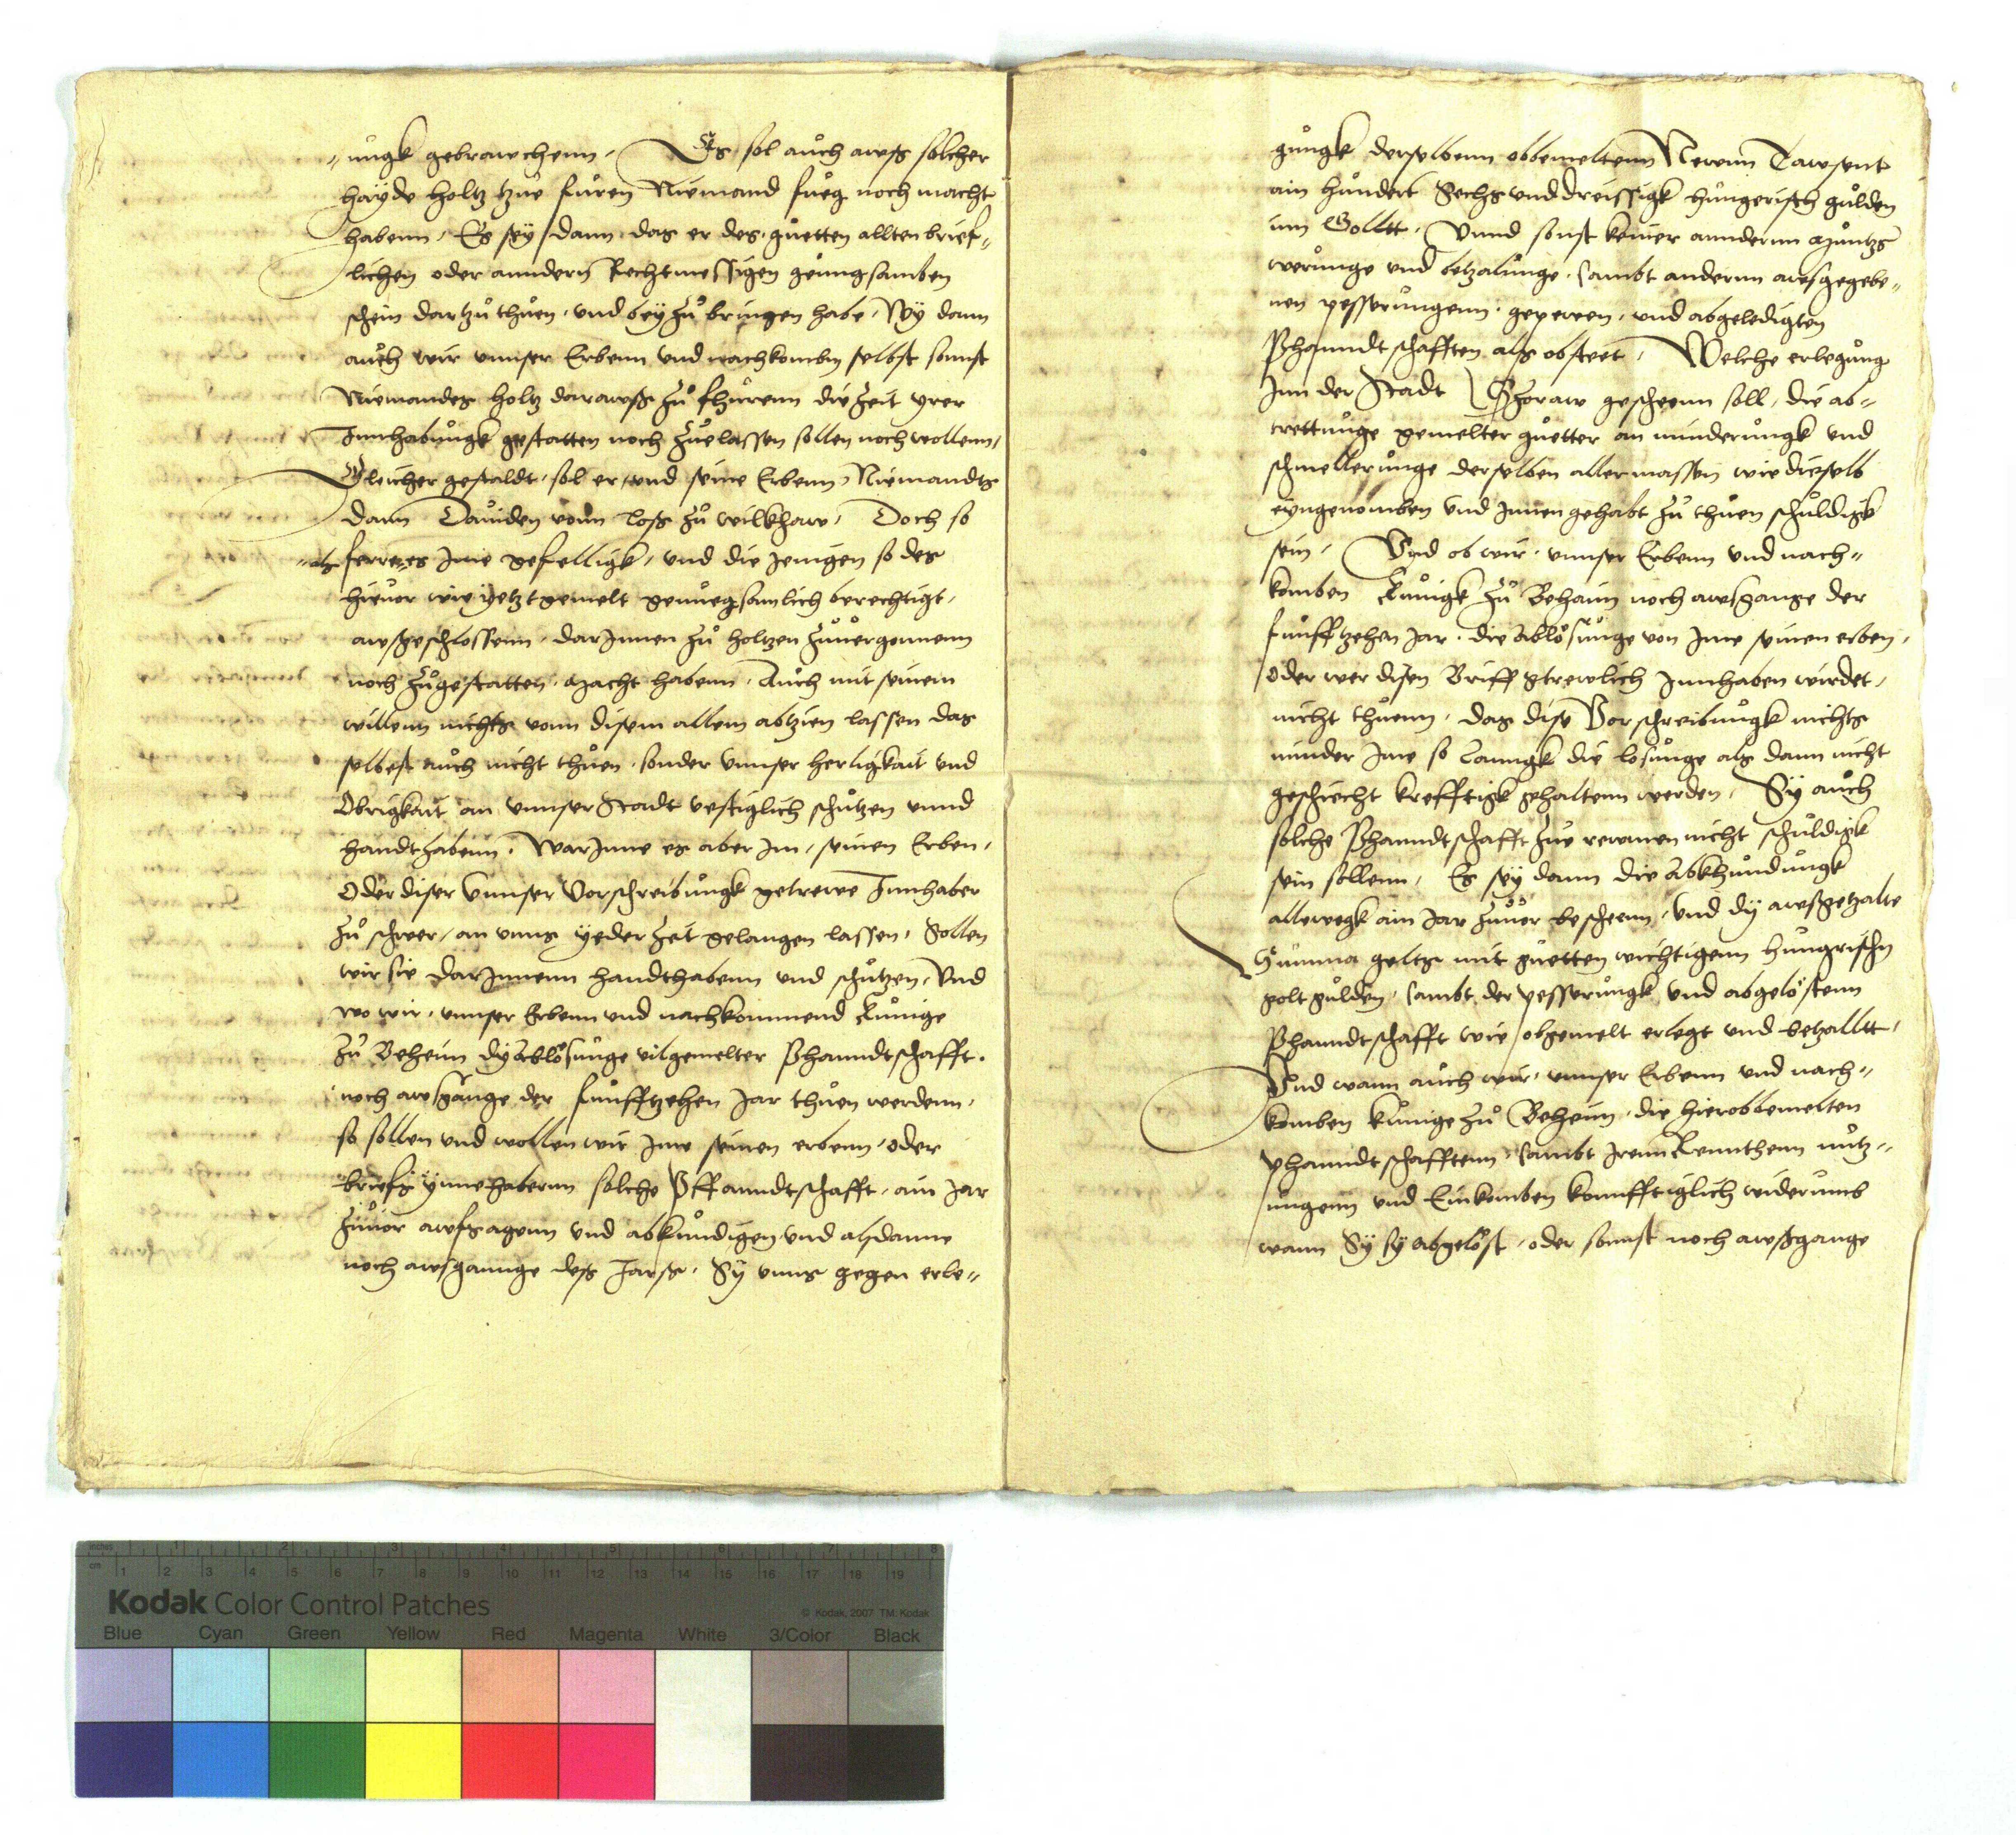 "ungk gebrawchenn, Es sol auch awss solcher
hayde holtz tzue furen Niemand fueg noch macht
habenn, Es sey dann, das er des guetten allten brief-
lichen oder anndern Rechtmessigen genugsamben
schein dartzu thuen, und bey zu bringen habe, Wy dann
auch wir unnser Erbenn und nachkombn selbst sonst
Niemandes holtz darawss zu fhurenn die zeit yrer
Innhabungk gestatten noch zuelassen sollen noch wollenn,
Gleicher gestaldt, sol er, und seine Erbenn, Niemandts
dann Dauiden vonn loss zu wilkhaw, Doch so
als ferre es Ime gefelligk, und die jenigen so des
hieuor wie yetzt gemelt genuegsamlich berechtigt,
awssgeschlossenn, darInnen zu holtzen zuuergonnenn
noch zugestatten, macht habenn, Auch mit seinem
willenn nichts vonn disem allem abtzien lassen das
selbest auch nicht thuen, sonder unnser herligkait und
Obrigkait an unnser Stadt vestiglich schutzen unnd
handthabenn, WarInne es aber Im, seinen Erben,
Oder diser unnser Vorschreibungk getrewe Innhaber
zu schwer, an unns yeder zeit gelangen lassen, Sollen
wir sie darInnenn handthabenn und schutzen, Und
wo wir, unnser Erbenn und nachkommend Kunige
zu Beheim dy ablösunge vilgemelter Phanndtschafft,
noch awsgange der funfftzehen Jar thuen werdenn,
so sollen und wollen wir Ime seinen erbenn, oder
briefs ynnehabernn solche Pffanndtschafft, ain Jar
zuuor awfsagenn und abkundigen, und alsdanne
noch awsgannge dess Jarss, Sy unns gegen erle-
gungk derselbenn obbemeltenn Newnn Tawsent
ain hundert Sechs und dreissigk hungerisch gulden
inn Golltt, Unnd sonst keiner anndernn Muntzs
werunge und betzalunge, sambt andernn awsgegebe-
nen pesserungenn, gepewen, und abgeledigten
Phanndtschafften als obsteet, Welche erlegung
Inn der Stadt Soraw gescheenn soll, die ab-
trettunge gemelter guetter an minderungk und
schmellerunge derselben aller massen wie dieselb
eyngenomben und Innen gehabt zu thuen schuldigk
sein, Und ob wir, unnser Erbenn und nach-
komben Kunigk zu Behaim noch awsgange der
funfftzehen Jar, die ablösunge von Ime seinen erben,
Oder wer disen Briff getrewlich Innhaben wirdet,
nicht thuenn, das dise Vorschreibungk nichts
minder Ime so lanngk die losunge als dann nicht
geschiecht krefftigk gehaltenn werden, Sy auch
solche Phanndtschafft zue rewmen nicht schuldigk
sein sollenn, Es sey dann die abkhundungk
allewegk ain Jar zuuor bescheenn, und dy awssgetzalte
Summa geltz mit guetten wichtigenn hungrischn
golt gulden, sambt der pesserungk und abgelöstenn
Phanndtschafft wie obgemelt erlegt und betzalltt,
Und wann auch wir, unnser Erbenn und nach-
komben kunige zu Beheim, die hierobbemelten
phanndtschafftenn, sambt Irenn Renntthenn nutz-
ungenn und Einkomben konnfftiglich widerumb
wann Sy sy abgelöst, oder sonnst noch awssgange
inches 1 2 3 4 5 6 7 8
cm 1 2 3 4 5 6 7 8 9 10 11 12 13 14 15 16 17 18 19
Kodak Color Control Patches
© Kodak, 2007 TM: Kodak
Blue Cyan Green Yellow Red Magenta White 3/Color Black